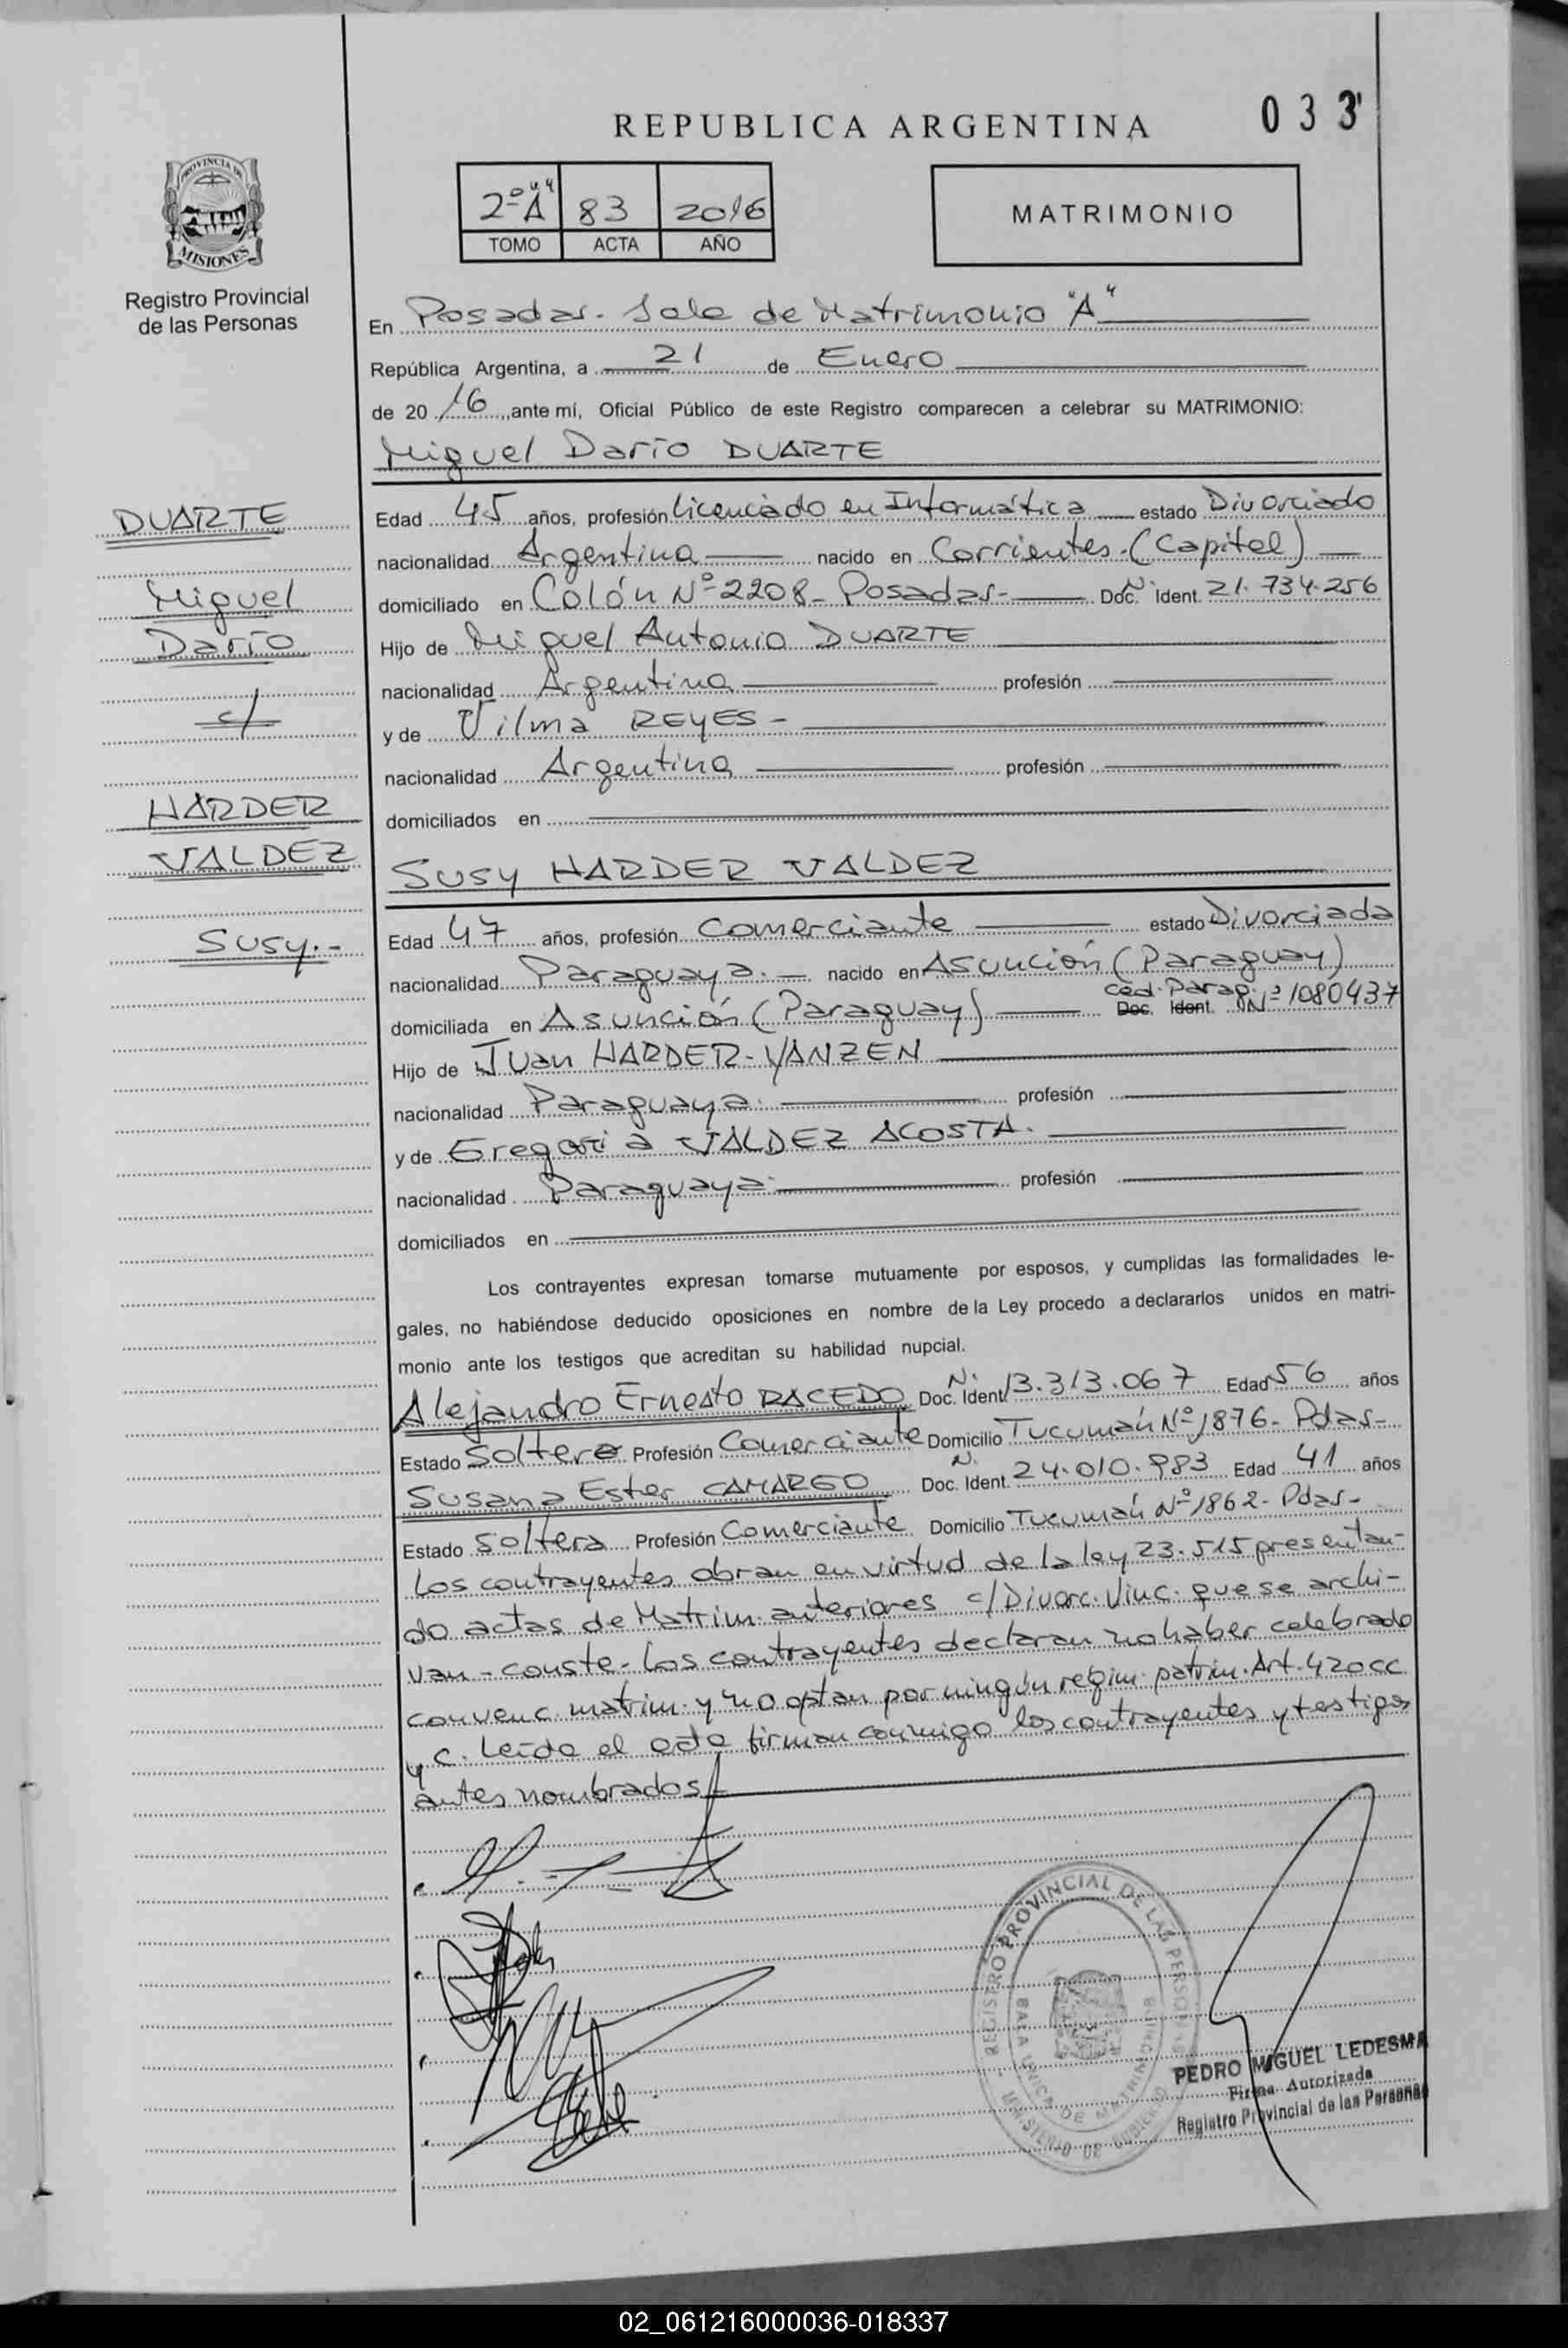 033
REPUBLICA ARGENTINA
2º "A" 83 2016
TOMO ACTA AÑO
MATRIMONIO
PROVINCIA DE
MISIONES
Registro Provincial
de las Personas
En Posadas - Sala de Matrimonio "A"
República Argentina, a 21 de Enero
de 20 16, ante mí, Oficial Público de este Registro comparecen a celebrar su MATRIMONIO:
Miguel Darío DUARTE
DUARTE
Miguel
Darío
c/
HARDER
VALDEZ
Susy.-
Edad 45 años, profesión Licenciado en Informática estado Divorciado
nacionalidad Argentina nacido en Corrientes (Capital)
domiciliado en Colón Nº 2208 - Posadas - Doc. N. Ident. 21.734.256
Hijo de Miguel Antonio DUARTE
nacionalidad Argentina profesión
y de Vilma REYES -
nacionalidad Argentina profesión
domiciliados en
Susy HARDER VALDEZ
Edad 47 años, profesión Comerciante estado Divorciada
nacionalidad Paraguaya. nacido en Asunción (Paraguay)
domiciliada en Asunción (Paraguay) Ced. Parag. Doc. Ident. Nº 1080437
Hijo de Juan HARDER - YANZEN
nacionalidad Paraguaya. profesión
y de Gregoria VALDEZ ACOSTA.
nacionalidad Paraguaya. profesión
domiciliados en
Los contrayentes expresan tomarse mutuamente por esposos, y cumplidas las formalidades le-
gales, no habiéndose deducido oposiciones en nombre de la Ley procedo a declararlos unidos en matri-
monio ante los testigos que acreditan su habilidad nupcial.
Alejandro Ernesto RACEDO Doc. N. Ident. 13.313.067 Edad 56 años
Estado Soltero Profesión Comerciante Domicilio Tucumán Nº 1876 - Pdas -
Susana Ester CAMARGO Doc. N. Ident. 24.010.983 Edad 41 años
Estado Soltera Profesión Comerciante Domicilio Tucumán Nº 1862 - Pdas -
Los contrayentes obran en virtud de la ley 23.515 presentan-
do actas de Matrim. anteriores c/Divorc. Vinc. que se archi-
van - conste - Los contrayentes declaran no haber celebrado
convenc. matrim. y no optan por ningún regim. patrim. Art. 420 CC
y C. Leída el acta firman conmigo los contrayentes y testigos
antes nombrados
REGISTRO PROVINCIAL DE LAS PERSONAS
MINISTERIO DE GOBIERNO
PEDRO MIGUEL LEDESMA
Firma Autorizada
Registro Provincial de las Personas
02_061216000036-018337